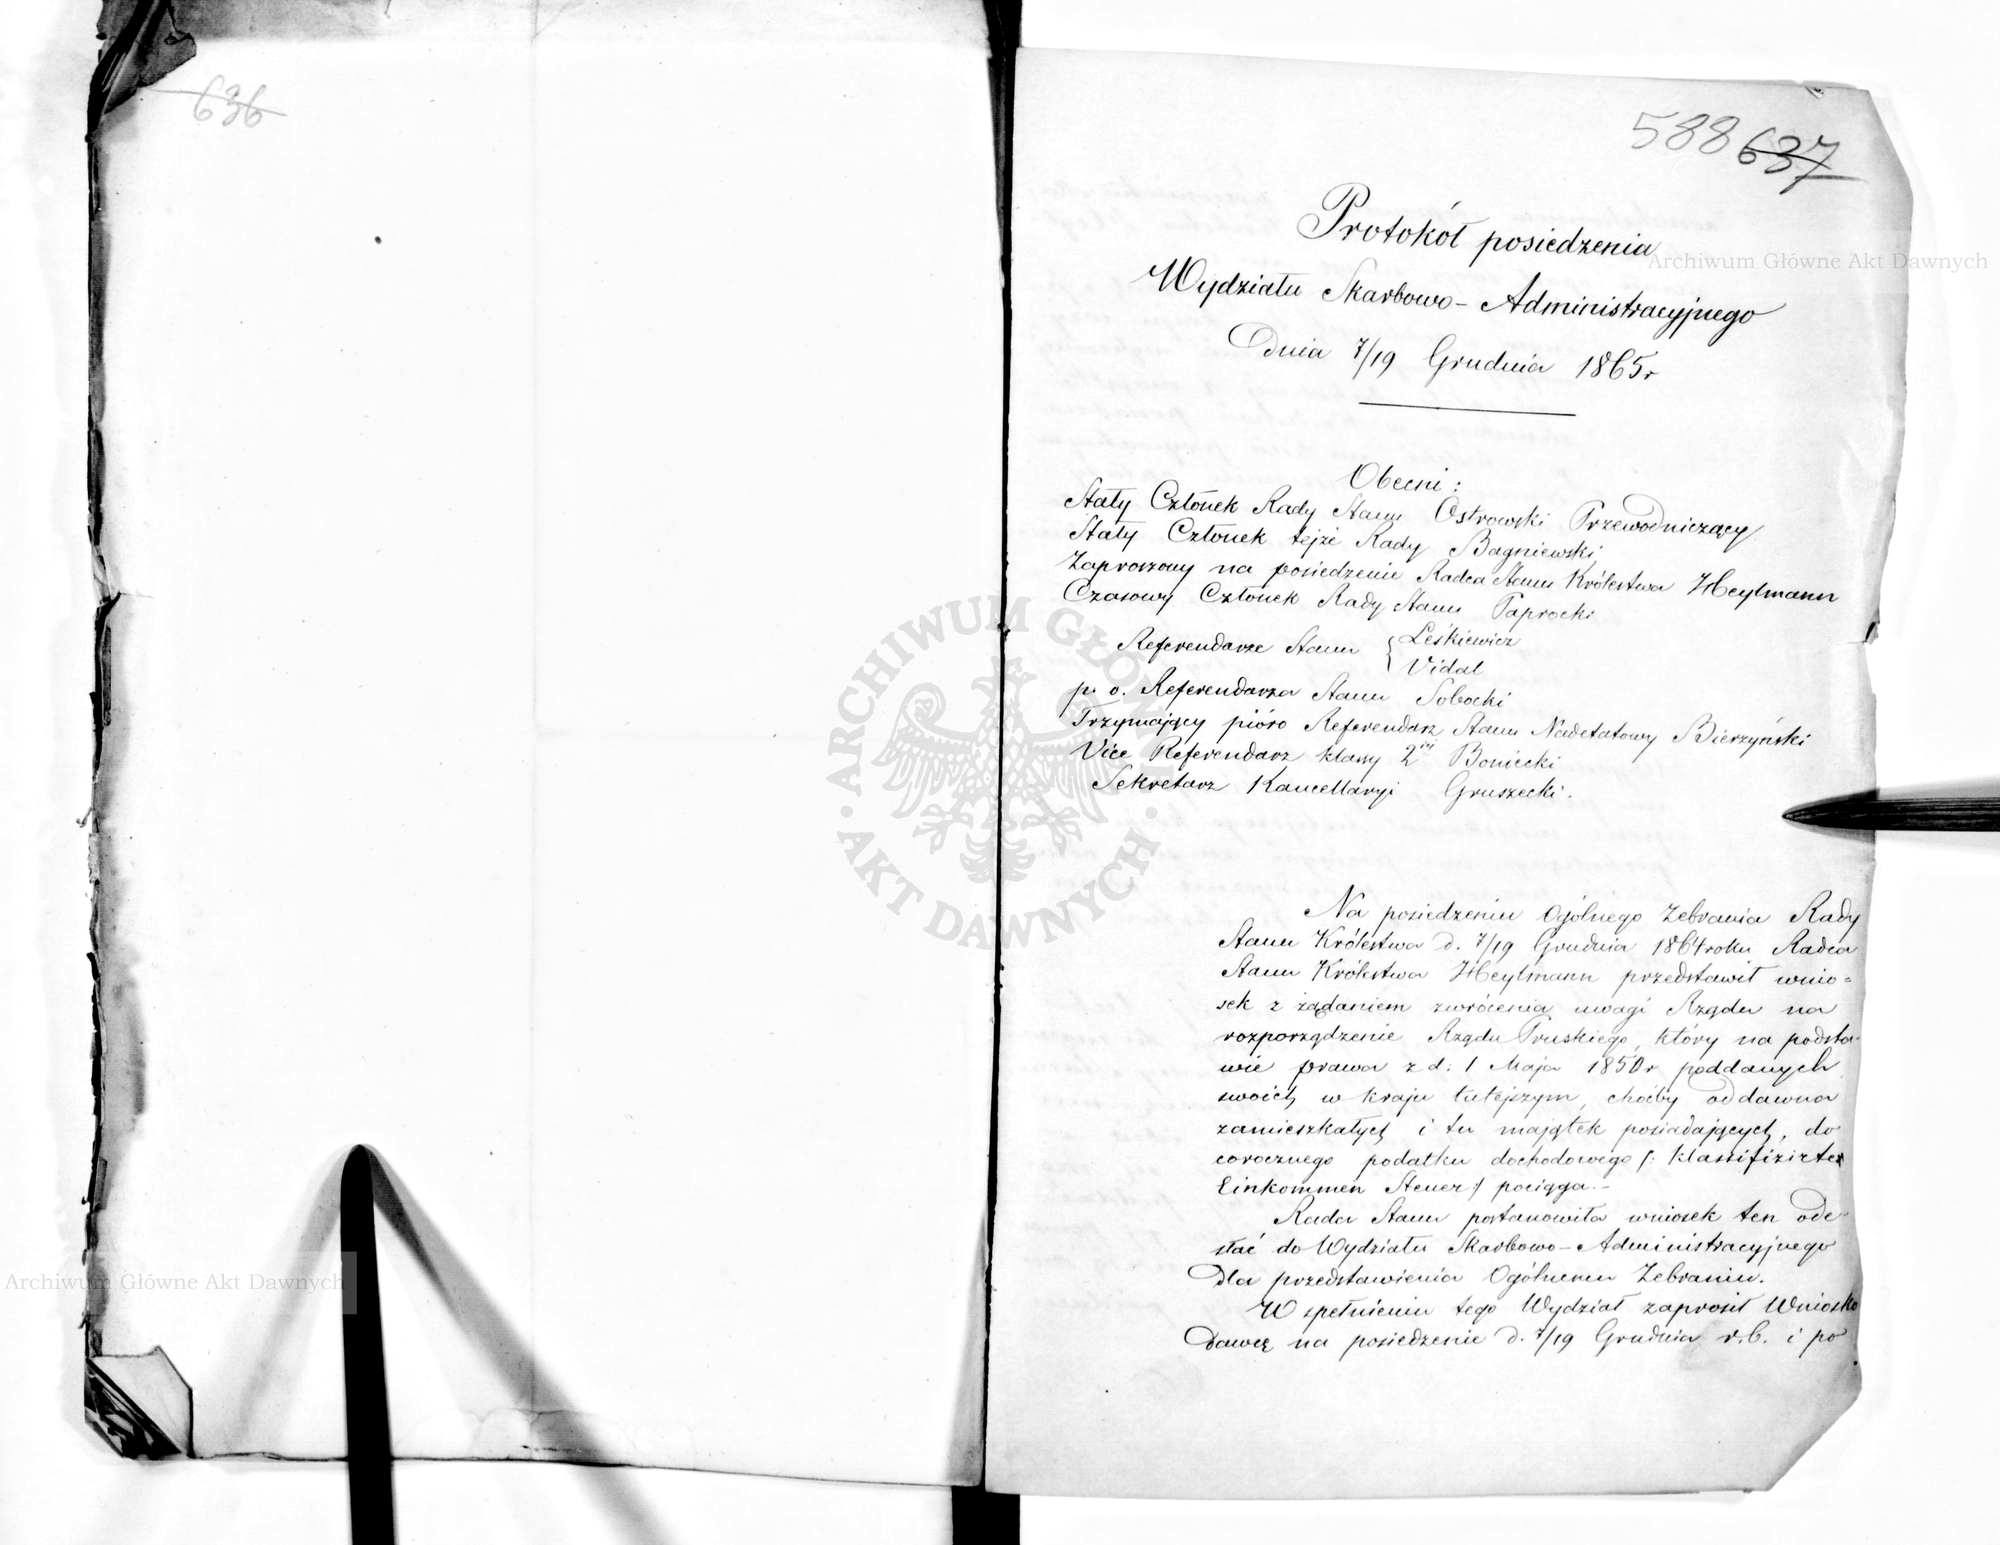 636
588 637
Protokół posiedzenia
Wydziału Skarbowo-Administracyjnego
Dnia 7/19 Grudnia 1865 r
Obecni:
Stały Członek Rady Stanu Ostrowski Przewodniczący
Stały Członek tejże Rady Bagniewski
Zaproszony na posiedzenie Radca Stanu Królestwa Heylmann
Czasowy Członek Rady Stanu Paprocki
Referendarze Stanu { Leśkiewicz
Vidal
p. o. Referendarza Stanu Sobocki
Trzymający pióro Referendarz Stanu Nadetatowy Bierzyński
Vice Referendarz klassy 2ej Boniecki
Sekretarz Kancellaryi Gruszecki.
Na posiedzeniu Ogólnego Zebrania Rady
Stanu Królestwa d. 7/19 Grudnia 1864 roku Radca
Stanu Królestwa Heylmann przedstawił wnio=
sek z żądaniem zwrócenia uwagi Rządu na
rozporządzenie Rządu Pruskiego, który na podsta-
wie prawa z d: 1 Maja 1850 r poddanych
swoich w kraju tutejszym, choćby oddawna
zamieszkałych i tu majątek posiadających, do
corocznego podatku dochodowego /: klassifizirte
Einkommen Steuer :/ pociąga.-
Rada Stanu postanowiła wniosek ten ode-
słać do Wydziału Skarbowo-Administracyjnego
dla przedstawienia Ogólnemu Zebraniu.
W spełnieniu tego Wydział zaprosił Wniosko
dawcę na posiedzenie d. 7/19 Grudnia r.b. i po
Archiwum Główne Akt Dawnych
ARCHIWUM GŁÓWNE AKT DAWNYCH
Archiwum Główne Akt Dawnych